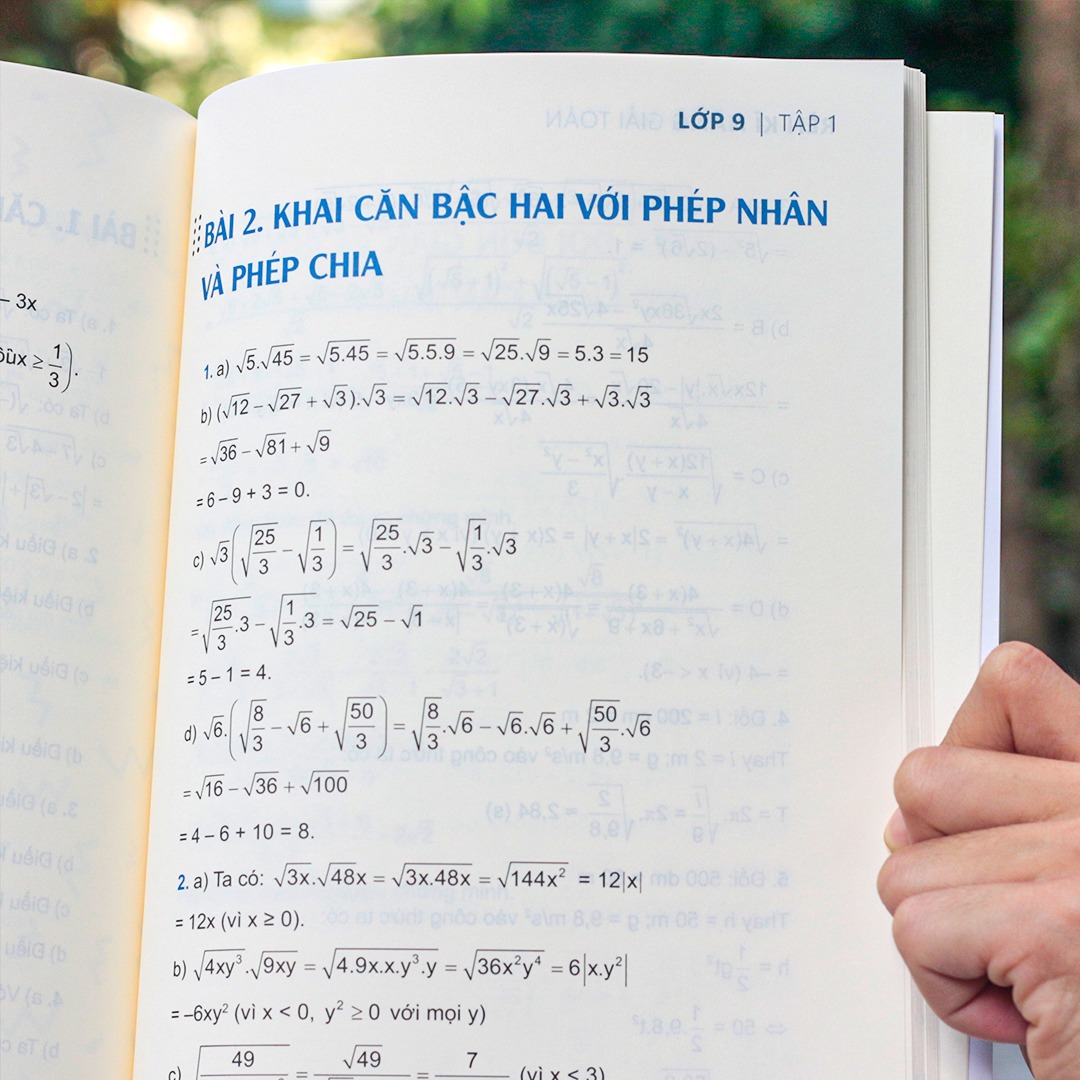 LỚP 9 | TẬP 1
BÀI 2. KHAI CĂN BẬC HAI VỚI PHÉP NHÂN
VÀ PHÉP CHIA
– 3x
x ≥ 1/3).
1. a) √5.√45 = √(5.45) = √(5.5.9) = √25.√9 = 5.3 = 15
b) (√12 – √27 + √3).√3 = √12.√3 – √27.√3 + √3.√3
= √36 – √81 + √9
= 6 – 9 + 3 = 0.
c) √3(√(25/3) – √(1/3)) = √(25/3).√3 – √(1/3).√3
= √(25/3.3) – √(1/3.3) = √25 – √1
= 5 – 1 = 4.
d) √6.(√(8/3) – √6 + √(50/3)) = √(8/3).√6 – √6.√6 + √(50/3).√6
= √16 – √36 + √100
= 4 – 6 + 10 = 8.
2. a) Ta có: √(3x).√(48x) = √(3x.48x) = √(144x²) = 12|x|
= 12x (vì x ≥ 0).
b) √(4xy³).√(9xy) = √(4.9x.x.y³.y) = √(36x²y⁴) = 6|x.y²|
= –6xy² (vì x < 0, y² ≥ 0 với mọi y)
c) 49 = √49 = 7 (vì x < 3)